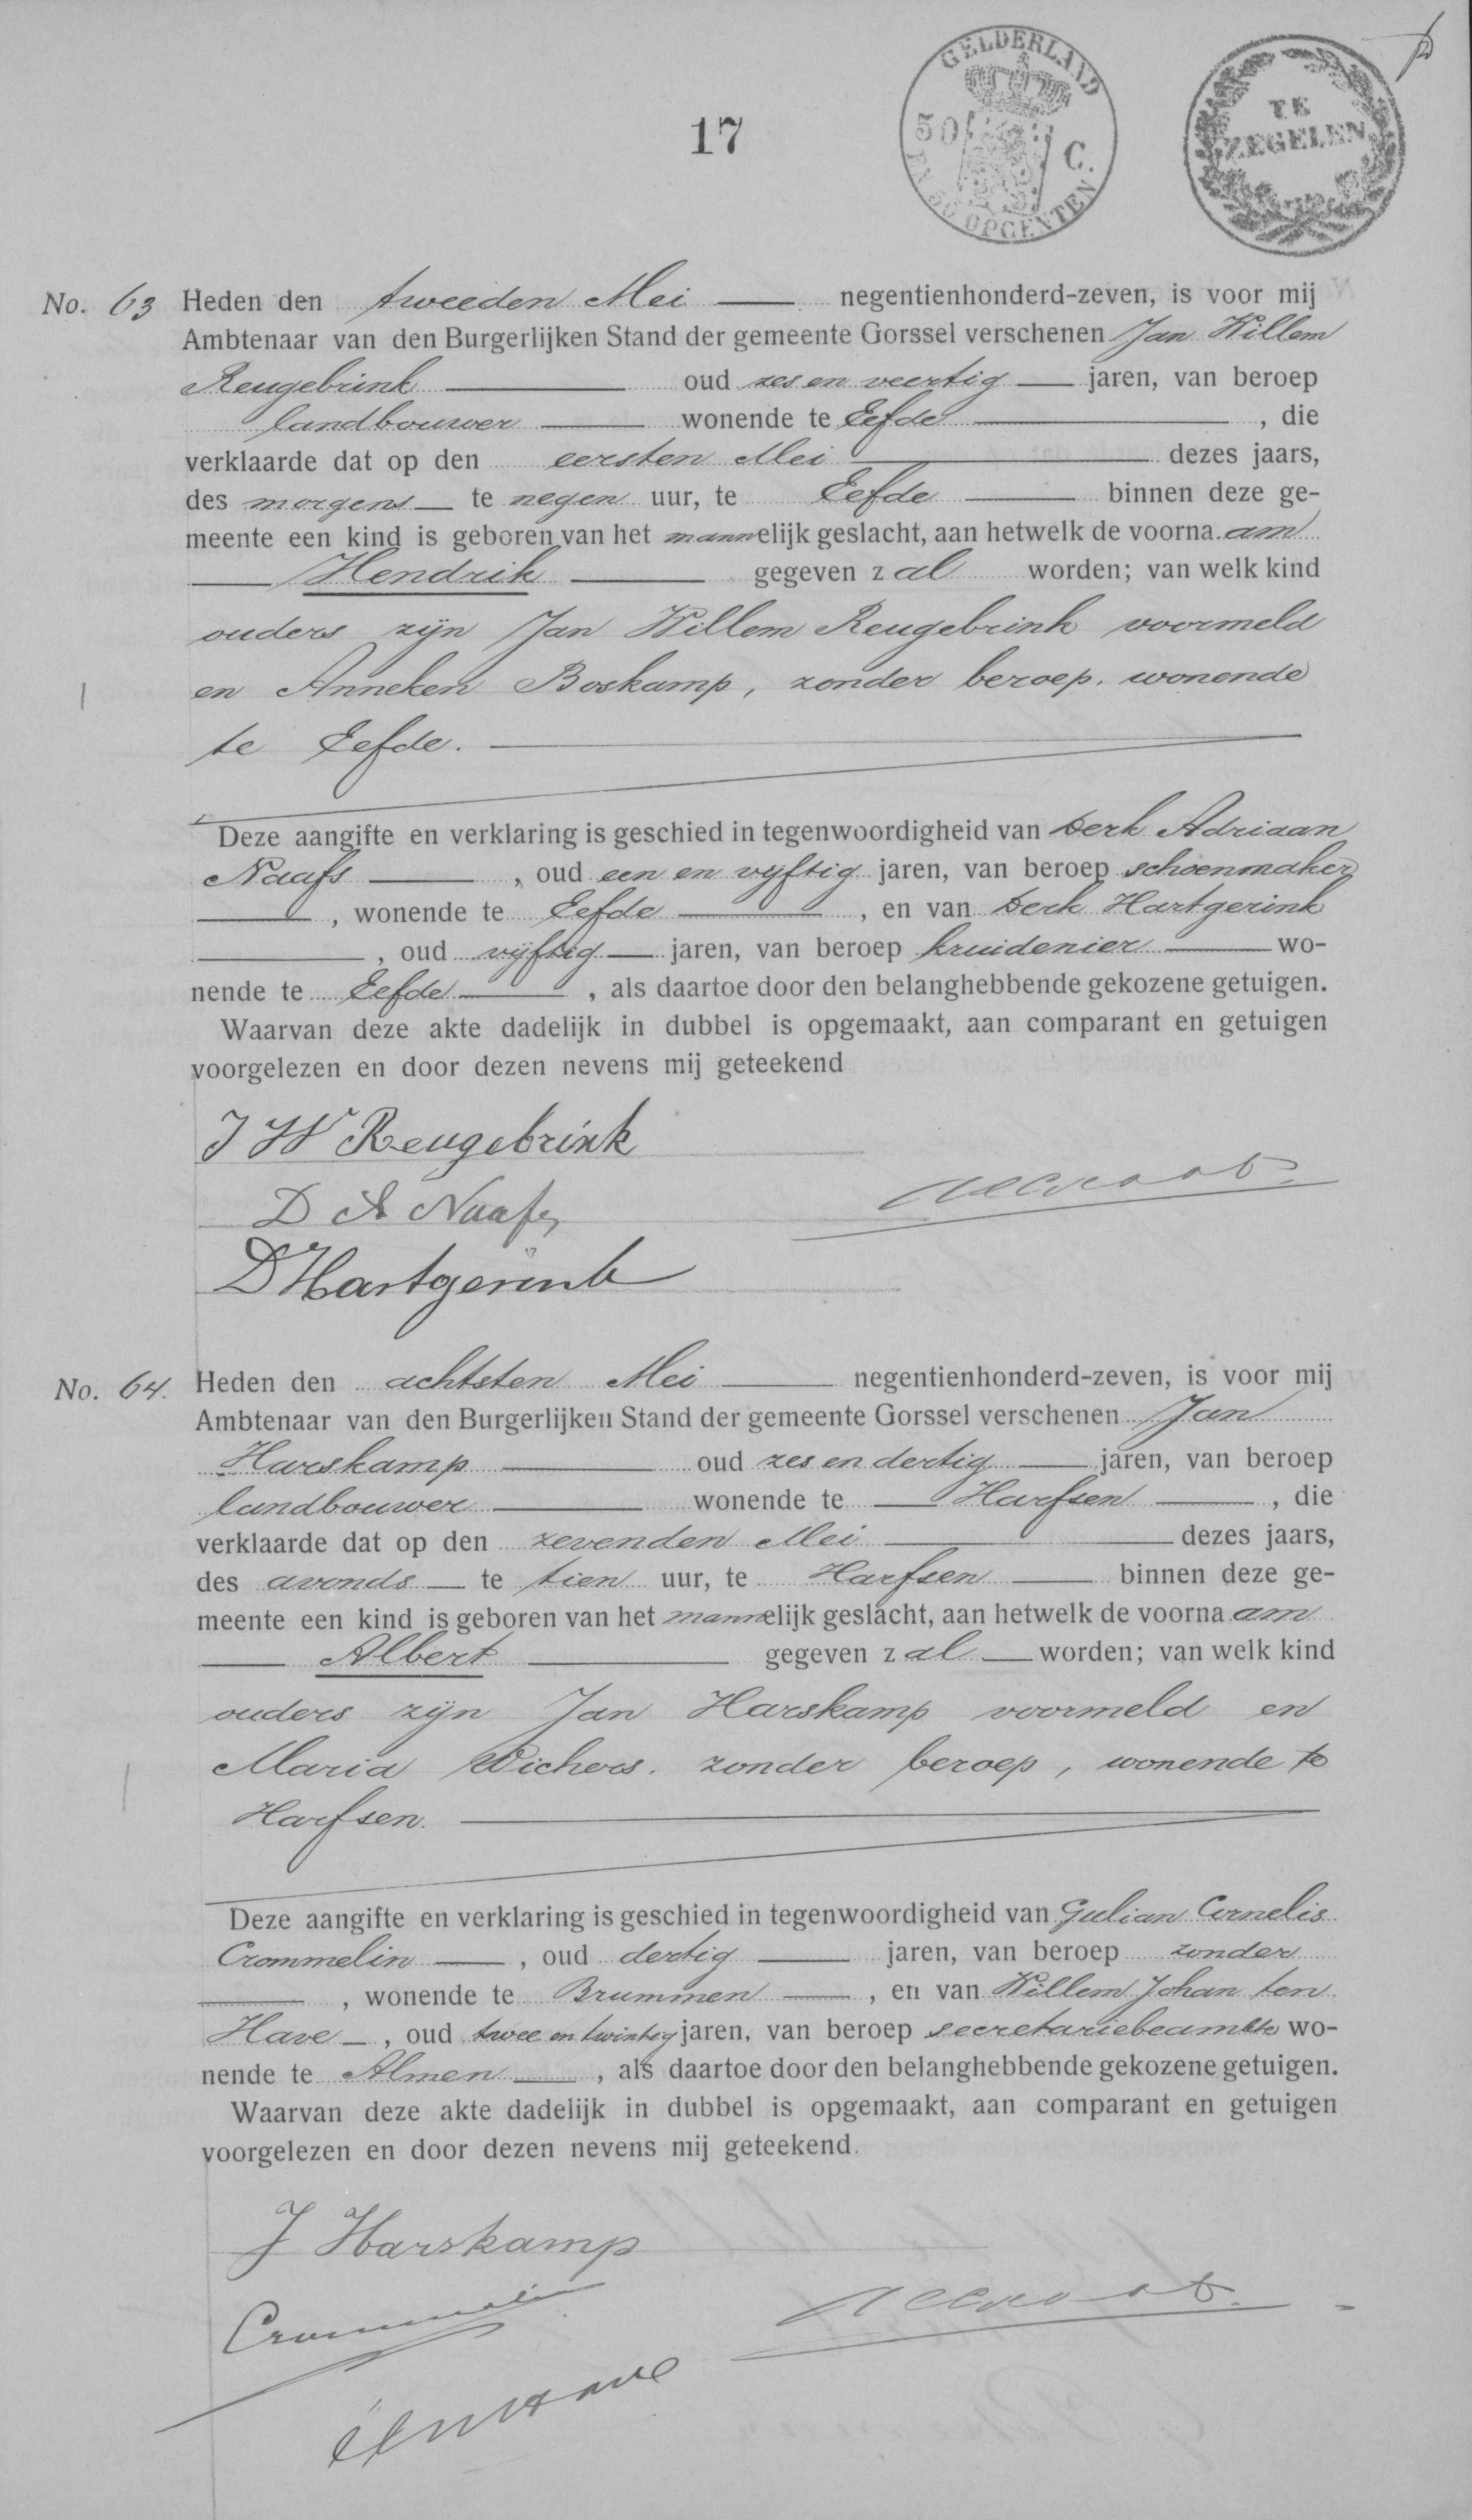 GELDERLAND
50 C.
EN 50 OPCENTEN.
TE
ZEGELEN
17
No. 63 Heden den tweeden Mei negentienhonderd-zeven, is voor mij
Ambtenaar van den Burgerlijken Stand der gemeente Gorssel verschenen Jan Willem
Reugebrink oud zes en veertig jaren, van beroep
landbouwer wonende te Eefde, die
verklaarde dat op den eersten Mei dezes jaars,
des morgens te negen uur, te Eefde binnen deze ge-
meente een kind is geboren van het mannelijk geslacht, aan hetwelk de voorna.am
Hendrik gegeven zal worden; van welk kind
ouders zijn Jan Willem Reugebrink voormeld
en Anneken Boskamp, zonder beroep, wonende
te Eefde.
Deze aangifte en verklaring is geschied in tegenwoordigheid van Derk Adriaan
Naafs, oud een en vijftig jaren, van beroep schoenmaker
, wonende te Eefde, en van Derk Hartgerink
, oud vijftig jaren, van beroep kruidenier wo-
nende te Eefde, als daartoe door den belanghebbende gekozene getuigen.
Waarvan deze akte dadelijk in dubbel is opgemaakt, aan comparant en getuigen
voorgelezen en door dezen nevens mij geteekend
J W Reugebrink
D A Naafs
D Hartgerink
No. 64. Heden den achtsten Mei negentienhonderd-zeven, is voor mij
Ambtenaar van den Burgerlijken Stand der gemeente Gorssel verschenen Jan
Harskamp oud zes en dertig jaren, van beroep
landbouwer wonende te Harfsen, die
verklaarde dat op den zevenden Mei dezes jaars,
des avonds te tien uur, te Harfsen binnen deze ge-
meente een kind is geboren van het mannelijk geslacht, aan hetwelk de voorna am
Albert gegeven zal worden; van welk kind
ouders zijn Jan Harskamp voormeld en
Maria Wichers, zonder beroep, wonende te
Harfsen.
Deze aangifte en verklaring is geschied in tegenwoordigheid van Gulian Cornelis
Crommelin, oud dertig jaren, van beroep zonder
, wonende te Brummen, en van Willem Johan ten
Have, oud twee en twintig jaren, van beroep secretariebeambte wo-
nende te Almen, als daartoe door den belanghebbende gekozene getuigen.
Waarvan deze akte dadelijk in dubbel is opgemaakt, aan comparant en getuigen
voorgelezen en door dezen nevens mij geteekend.
J Harskamp
Crommelin